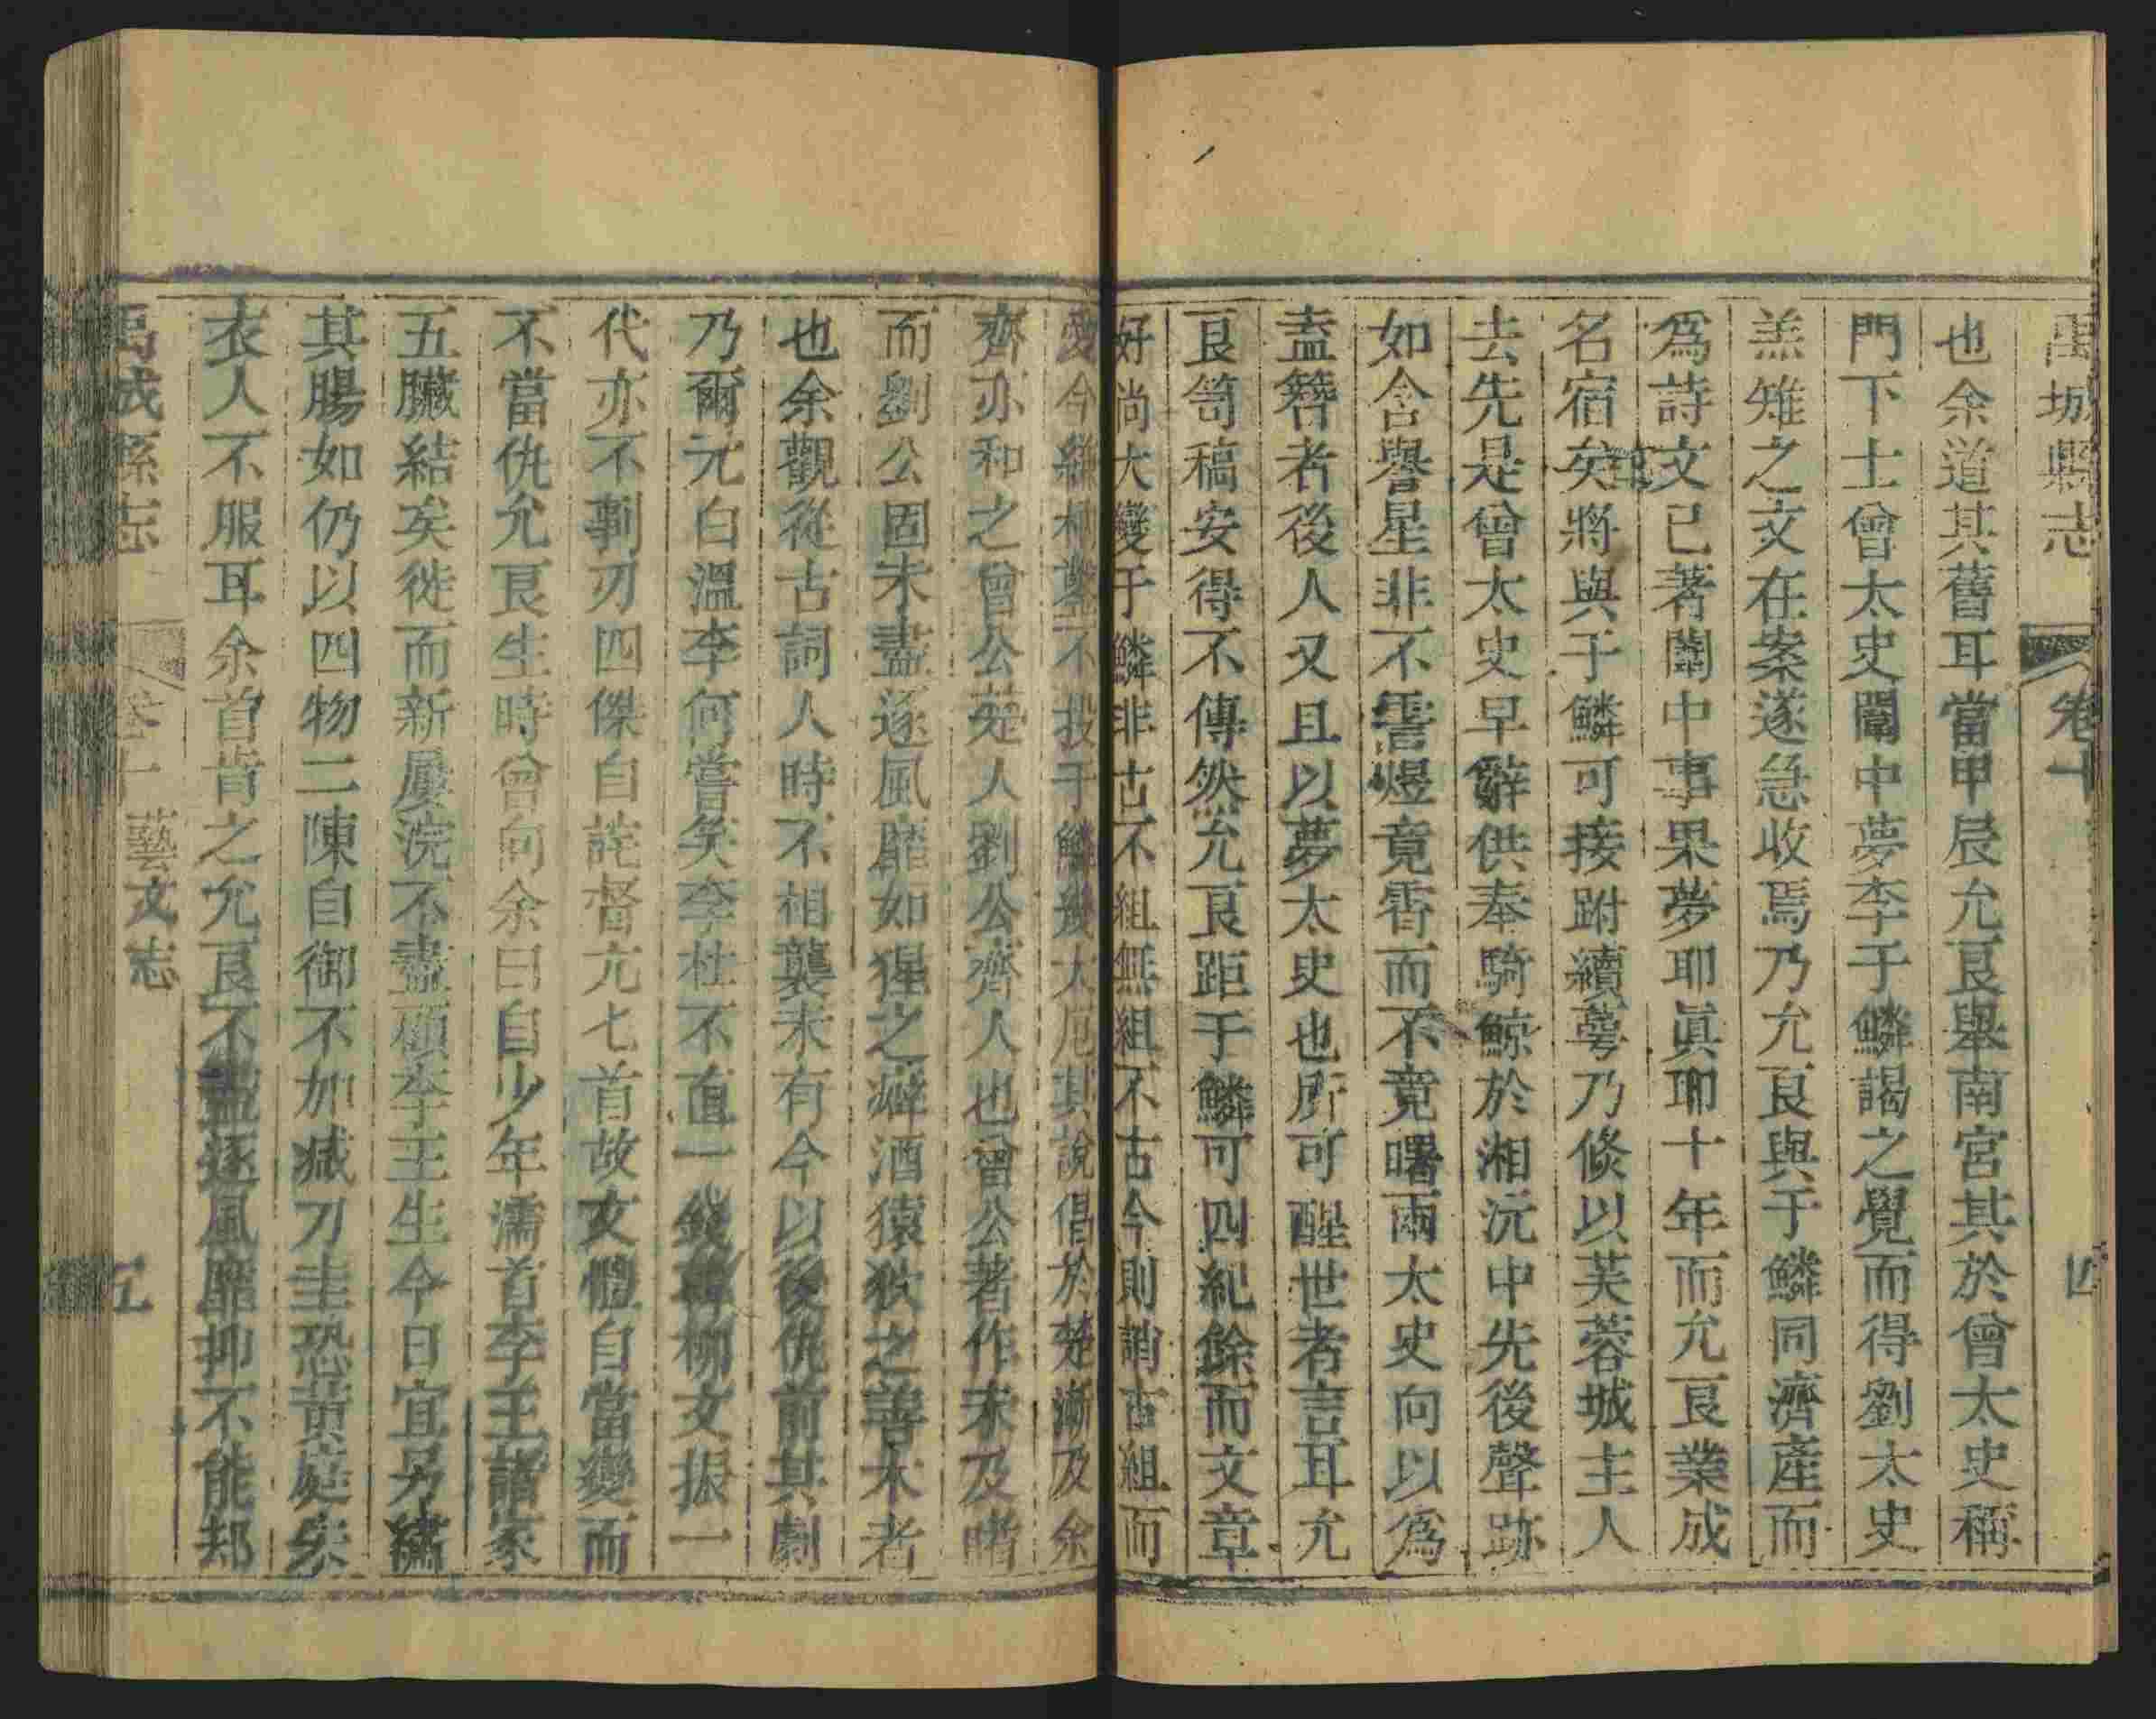 禹城縣志 卷十 四
也余道其舊耳當甲辰允良舉南宮其於曾太史稱
門下士曾太史闈中夢李于鱗謁之覺而得劉太史
羔雉之文在案遂急收焉乃允良與于鱗同濟產而
為詩文已著闈中事果夢耶眞耶十年而允良業成
名宿矣將與于鱗可接跗續蕚乃倐以芙蓉城主人
去先是曾太史早辭供奉騎鯨於湘沅中先後聲跡
如含譽星非不霅煜竟霄而不竟曙兩太史向以為
盍簪者後人又且以夢太史也所可醒世者言耳允
良笥稿安得不傳然允良距于鱗可四紀餘而文章
好尚大變于鱗非古不組無組不古今則誚古組而
愛今 不投于鱗幾大厄其說倡於楚漸及余
齊亦和之曾公楚人劉公齊人也曾公著作未及睹
而劉公固未盡逐風靡如猩之癖酒猿狄之善木者
也余觀從古詞人時不相襲未有今以後仇前其劇
乃爾元白溫李何嘗矣李杜不直一錢韓柳文振一
代亦不剚刃四傑自詫督亢七首故文體自當變而
不當仇允良生時曾向余曰自少年濡首李王諸家
五臟結矣徙而新屢浣不盡顧李王生今日宜另繡
其腸如仍以四物二陳自御不加减刀圭恐黃庭朱
衣人不服耳余首肯之允良不盡逐風靡抑不能却
禹城縣志 卷十 藝文志 五